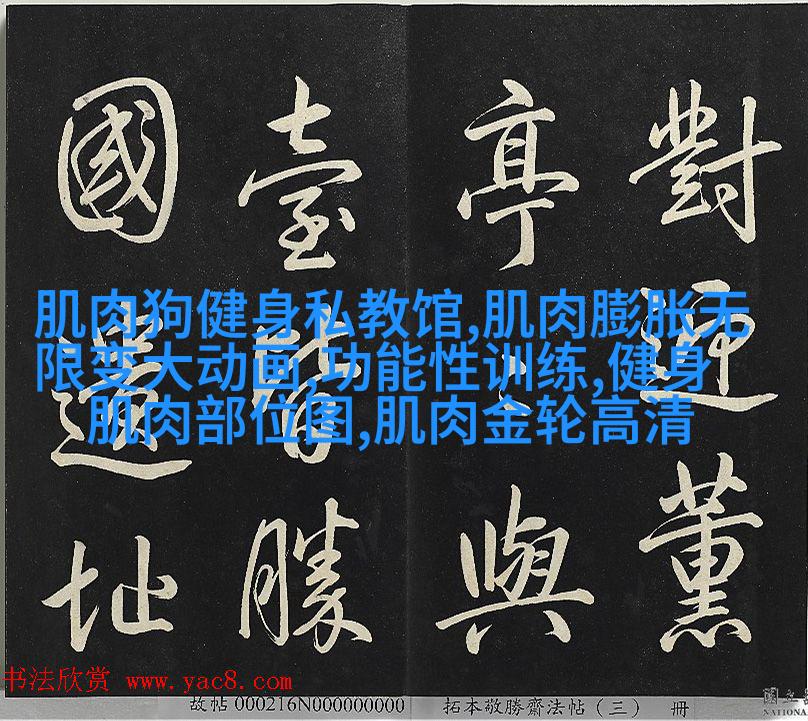 對迎薰
亭〻與
臺勝
國還址
肌肉狗健身私教馆,肌肉膨胀无
限变大动画,功能性训练,健身
肌肉部位图,肌肉金轮高清
书法欣赏 www.yac8.com
故帖 000216N000000000 拓本敬勝齋法帖（三） 册
國立
NATIONA